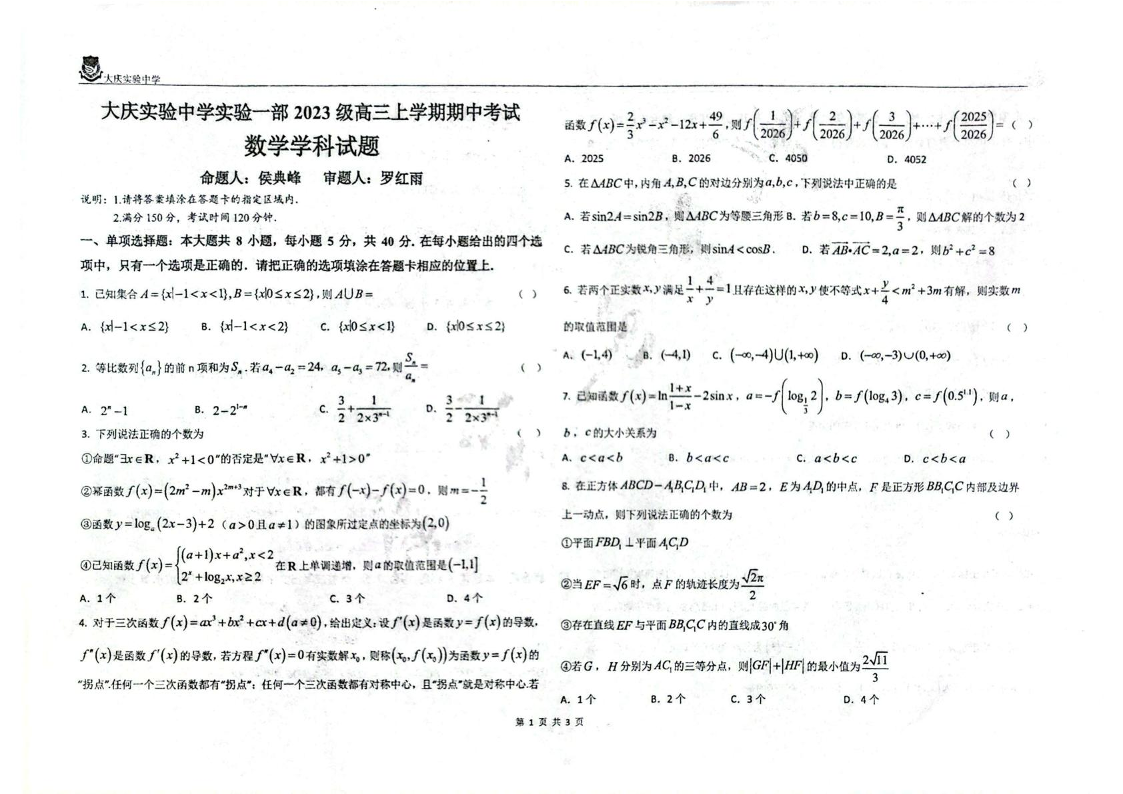 大庆实验中学
大庆实验中学实验一部 2023 级高三上学期期中考试
数学学科试题
命题人：侯典峰 审题人：罗红雨
说明：1.请将答案填涂在答题卡的指定区域内.
2.满分 150 分，考试时间 120 分钟.
一、单项选择题：本大题共 8 小题，每小题 5 分，共 40 分. 在每小题给出的四个选
项中，只有一个选项是正确的．请把正确的选项填涂在答题卡相应的位置上.
1. 已知集合 A={x|-1<x<1},B={x|0≤x≤2},则 A∪B= （ ）
A. {x|-1<x≤2} B. {x|-1<x<2} C. {x|0≤x<1} D. {x|0≤x≤2}
2. 等比数列{aₙ}的前 n 项和为 Sₙ.若 a₄-a₂=24，a₅-a₃=72,则 Sₙ/aₙ= （ ）
A. 2ⁿ-1 B. 2-2¹⁻ⁿ C. 3/2+1/(2×3ⁿ⁻¹) D. 3/2-1/(2×3ⁿ⁻¹)
3. 下列说法正确的个数为 （ ）
①命题"∃x∈R，x²+1<0"的否定是"∀x∈R，x²+1>0"
②幂函数 f(x)=(2m²-m)x^(2m+3) 对于∀x∈R，都有 f(-x)-f(x)=0，则 m=-1/2
③函数 y=logₐ(2x-3)+2（a>0且a≠1）的图象所过定点的坐标为(2,0)
④已知函数 f(x)={(a+1)x+a²,x<2 2ˣ+log₂x,x≥2 在 R 上单调递增，则 a 的取值范围是(-1,1]
A. 1个 B. 2个 C. 3个 D. 4个
4. 对于三次函数 f(x)=ax³+bx²+cx+d(a≠0)，给出定义:设 f'(x)是函数 y=f(x)的导数，
f''(x)是函数 f'(x)的导数，若方程 f''(x)=0有实数解 x₀，则称(x₀,f(x₀))为函数 y=f(x)的
"拐点".任何一个三次函数都有"拐点"；任何一个三次函数都有对称中心，且"拐点"就是对称中心.若
函数 f(x)=2/3x³-x²-12x+49/6，则 f(1/2026)+f(2/2026)+f(3/2026)+⋯+f(2025/2026)=（ ）
A. 2025 B. 2026 C. 4050 D. 4052
5. 在 △ABC 中,内角 A,B,C 的对边分别为 a,b,c，下列说法中正确的是 （ ）
A. 若 sin2A=sin2B，则△ABC为等腰三角形 B. 若 b=8,c=10,B=π/3，则△ABC解的个数为 2
C. 若△ABC为锐角三角形，则 sinA<cosB. D. 若 AB•AC=2,a=2，则 b²+c²=8
6. 若两个正实数 x,y 满足 1/x+4/y=1 且存在这样的 x,y 使不等式 x+y/4<m²+3m 有解，则实数 m
的取值范围是 （ ）
A. (-1,4) B. (-4,1) C. (-∞,-4)∪(1,+∞) D. (-∞,-3)∪(0,+∞)
7. 已知函数 f(x)=ln(1+x)/(1-x)-2sinx，a=-f(log_(1/3)2)，b=f(log₄3)，c=f(0.5^1.1)，则 a，
b，c 的大小关系为 （ ）
A. c<a<b B. b<a<c C. a<b<c D. c<b<a
8. 在正方体 ABCD-A₁B₁C₁D₁ 中，AB=2，E 为 A₁D₁ 的中点，F 是正方形 BB₁C₁C 内部及边界
上一动点，则下列说法正确的个数为 （ ）
①平面 FBD₁⊥平面 A₁C₁D
②当 EF=√6 时，点 F 的轨迹长度为 √2π/2
③存在直线 EF 与平面 BB₁C₁C 内的直线成30°角
④若 G，H 分别为 AC₁ 的三等分点，则|GF|+|HF|的最小值为 2√11/3
A. 1个 B. 2个 C. 3个 D. 4个
第 1 页 共 3 页